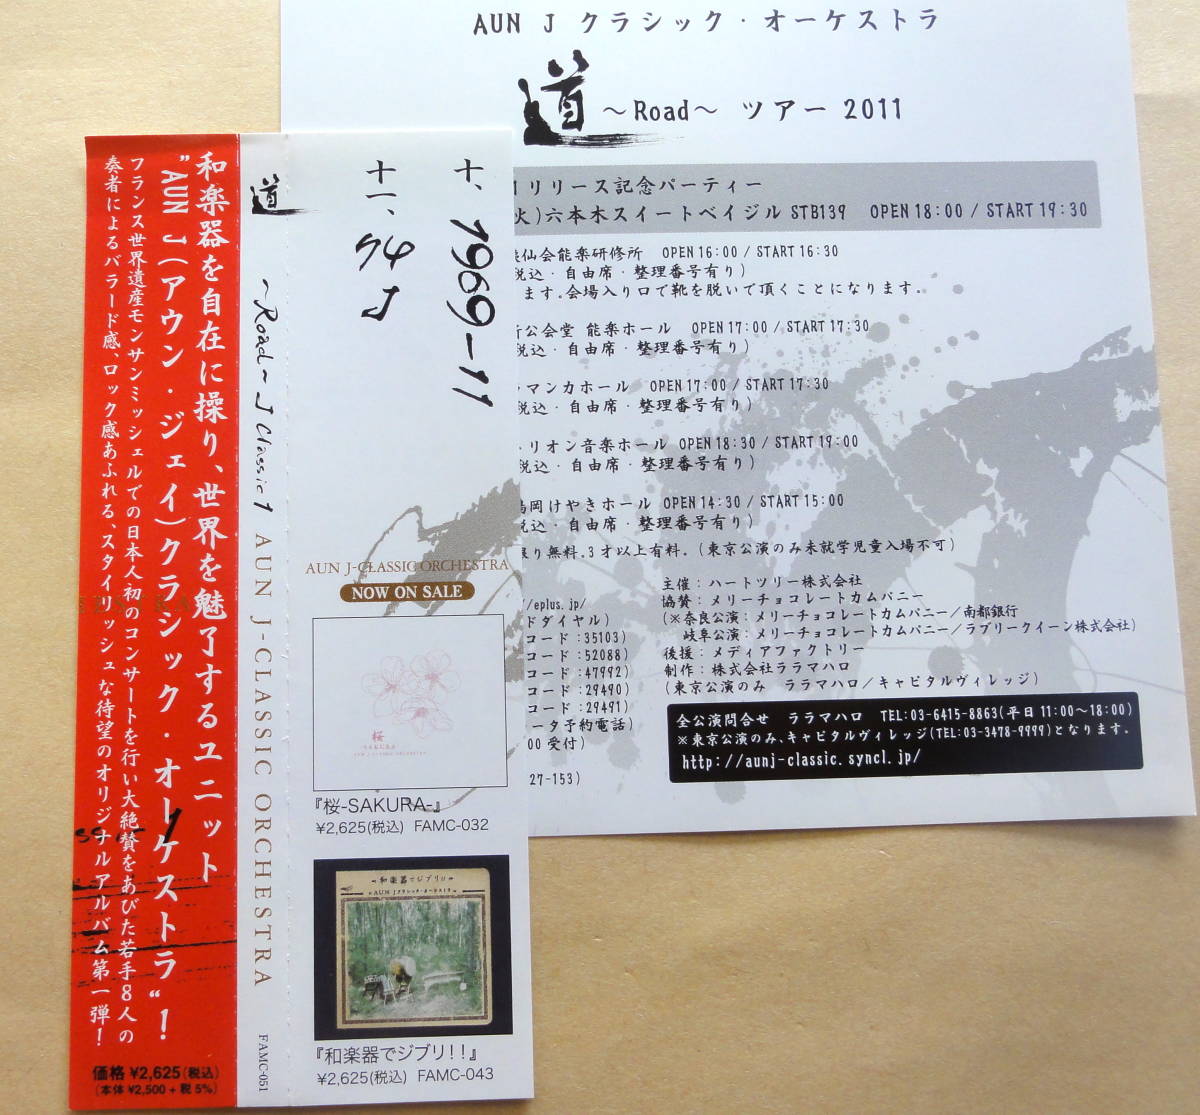 AUN J クラシック・オーケストラ
道 ～Road～ ツアー 2011
リリース記念パーティー
火)六本木スイートベイジル STB139 OPEN 18:00 / START 19:30
仙会能楽研修所 OPEN 16:00 / START 16:30
税込・自由席・整理番号有り)
ます。会場入り口で靴を脱いで頂くことになります。
公会堂 能楽ホール OPEN 17:00 / START 17:30
税込・自由席・整理番号有り)
ラマンカホール OPEN 17:00 / START 17:30
税込・自由席・整理番号有り)
リオン音楽ホール OPEN 18:30 / START 19:00
税込・自由席・整理番号有り)
岡けやきホール OPEN 14:30 / START 15:00
税込・自由席・整理番号有り)
限り無料。3才以上有料。(東京公演のみ未就学児童入場不可)
/eplus.jp/
ドダイヤル)
コード:35103)
コード:52088)
コード:47992)
コード:29490)
コード:29491)
ータ予約電話)
00 受付)
27-153)
主催:ハートツリー株式会社
協賛:メリーチョコレートカムパニー
(※奈良公演:メリーチョコレートカムパニー/南都銀行
岐阜公演:メリーチョコレートカムパニー/ラブリークイーン株式会社)
後援:メディアファクトリー
制作:株式会社ララマハロ
(東京公演のみ ララマハロ/キャピタルヴィレッジ)
全公演問合せ ララマハロ TEL:03-6415-8863(平日 11:00～18:00)
※東京公演のみ、キャピタルヴィレッジ(TEL:03-3478-9999)となります。
http://aunj-classic.syncl.jp/
和楽器を自在に操り、世界を魅了するユニット
"AUN J(アウン・ジェイ)クラシック・オーケストラ"!
フランス世界遺産モンサンミッシェルでの日本人初のコンサートを行い大絶賛をあびた若手8人の
奏者によるバラード感、ロック感あふれる、スタイリッシュな待望のオリジナルアルバム第一弾!
価格 ¥2,625(税込)
(本体 ¥2,500+税5%)
道 ～Road～ J Classic 1 AUN J-CLASSIC ORCHESTRA
FAMC-051
十、1969-11
十一、74 J
AUN J-CLASSIC ORCHESTRA
NOW ON SALE
桜
『桜-SAKURA-』
¥2,625(税込) FAMC-032
和楽器でジブリ!!
AUN J クラシック・オーケストラ
『和楽器でジブリ!!』
¥2,625(税込) FAMC-043